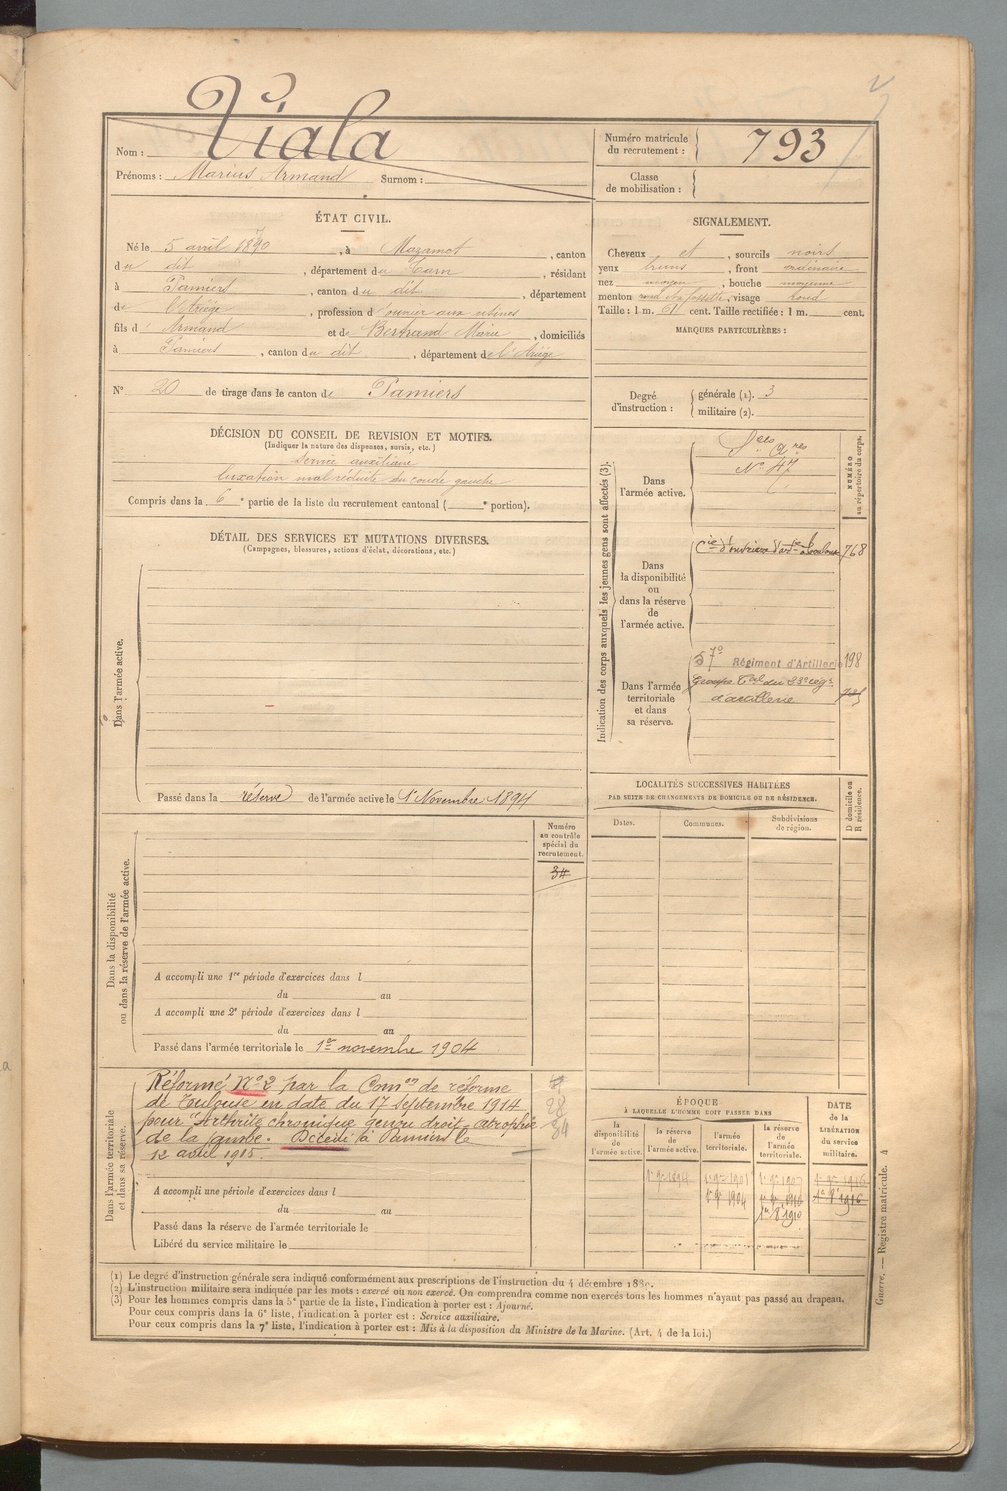 Viala
Nom :
Prénoms : Marius Armand Surnom :
Numéro matricule du recrutement : 793
Classe de mobilisation :
ÉTAT CIVIL.
Né le 5 avril 1870, à Mazamet, canton
du dit, département du Tarn, résidant
à Pamiers, canton du dit, département
de l'Ariège, profession d'ouvrier aux usines
fils d'Armand et de Bertrand Marie, domiciliés
à Pamiers, canton du dit, département de l'Ariège
N° 20 de tirage dans le canton de Pamiers
DÉCISION DU CONSEIL DE REVISION ET MOTIFS.
(Indiquer la nature des dispenses, sursis, etc.)
Service auxiliaire
luxation mal réduite du coude gauche
Compris dans la 6e partie de la liste du recrutement cantonal ( e portion).
SIGNALEMENT.
Cheveux et, sourcils noirs
yeux bruns, front ordinaire
nez moyen, bouche moyenne
menton rond à fossette, visage rond
Taille : 1 m. 61 cent. Taille rectifiée : 1 m. cent.
MARQUES PARTICULIÈRES :
Degré d'instruction :
générale (1). 3
militaire (2).
DÉTAIL DES SERVICES ET MUTATIONS DIVERSES.
(Campagnes, blessures, actions d'éclat, décorations, etc.)
Dans l'armée active.
Passé dans la réserve de l'armée active le 1er Novembre 1894
Indication des corps auxquels les jeunes gens sont affectés (3).
NUMÉRO au répertoire du corps.
Dans l'armée active.
Sces Ares
N° 47
Dans la disponibilité ou dans la réserve de l'armée active.
Cie d'ouvriers d'artie à Toulouse 768
Dans l'armée territoriale et dans sa réserve.
57e Régiment d'Artillerie 198
Groupe Tal du 23e rég.
d'artillerie
LOCALITÉS SUCCESSIVES HABITÉES
PAR SUITE DE CHANGEMENTS DE DOMICILE OU DE RÉSIDENCE.
Dates. Communes. Subdivisions de région.
D domicile ou R résidence.
Dans la disponibilité ou dans la réserve de l'armée active.
Numéro au contrôle spécial du recrutement.
34
A accompli une 1re période d'exercices dans l
du au
A accompli une 2e période d'exercices dans l
du au
Passé dans l'armée territoriale le 1er novembre 1904
Dans l'armée territoriale et dans sa réserve.
Réformé N°2 par la Comon de réforme
de Toulouse en date du 17 Septembre 1914
pour Arthrite chronique genou droit - atrophie
de la jambe. Décédé à Pamiers le
12 avril 1915.
28
34
A accompli une période d'exercices dans l
du au
Passé dans la réserve de l'armée territoriale le
Libéré du service militaire le
ÉPOQUE
À LAQUELLE L'HOMME DOIT PASSER DANS
la disponibilité de l'armée active.
la réserve de l'armée active.
l'armée territoriale.
la réserve de l'armée territoriale.
DATE de la LIBÉRATION du service militaire.
(1) Le degré d'instruction générale sera indiqué conformément aux prescriptions de l'instruction du 4 décembre 1889.
(2) L'instruction militaire sera indiquée par les mots : exercé ou non exercé. On comprendra comme non exercés tous les hommes n'ayant pas passé au drapeau.
(3) Pour les hommes compris dans la 5e partie de la liste, l'indication à porter est : Ajourné.
Pour ceux compris dans la 6e liste, l'indication à porter est : Service auxiliaire.
Pour ceux compris dans la 7e liste, l'indication à porter est : Mis à la disposition du Ministre de la Marine. (Art. 4 de la loi.)
Guerre. — Registre matricule. 4